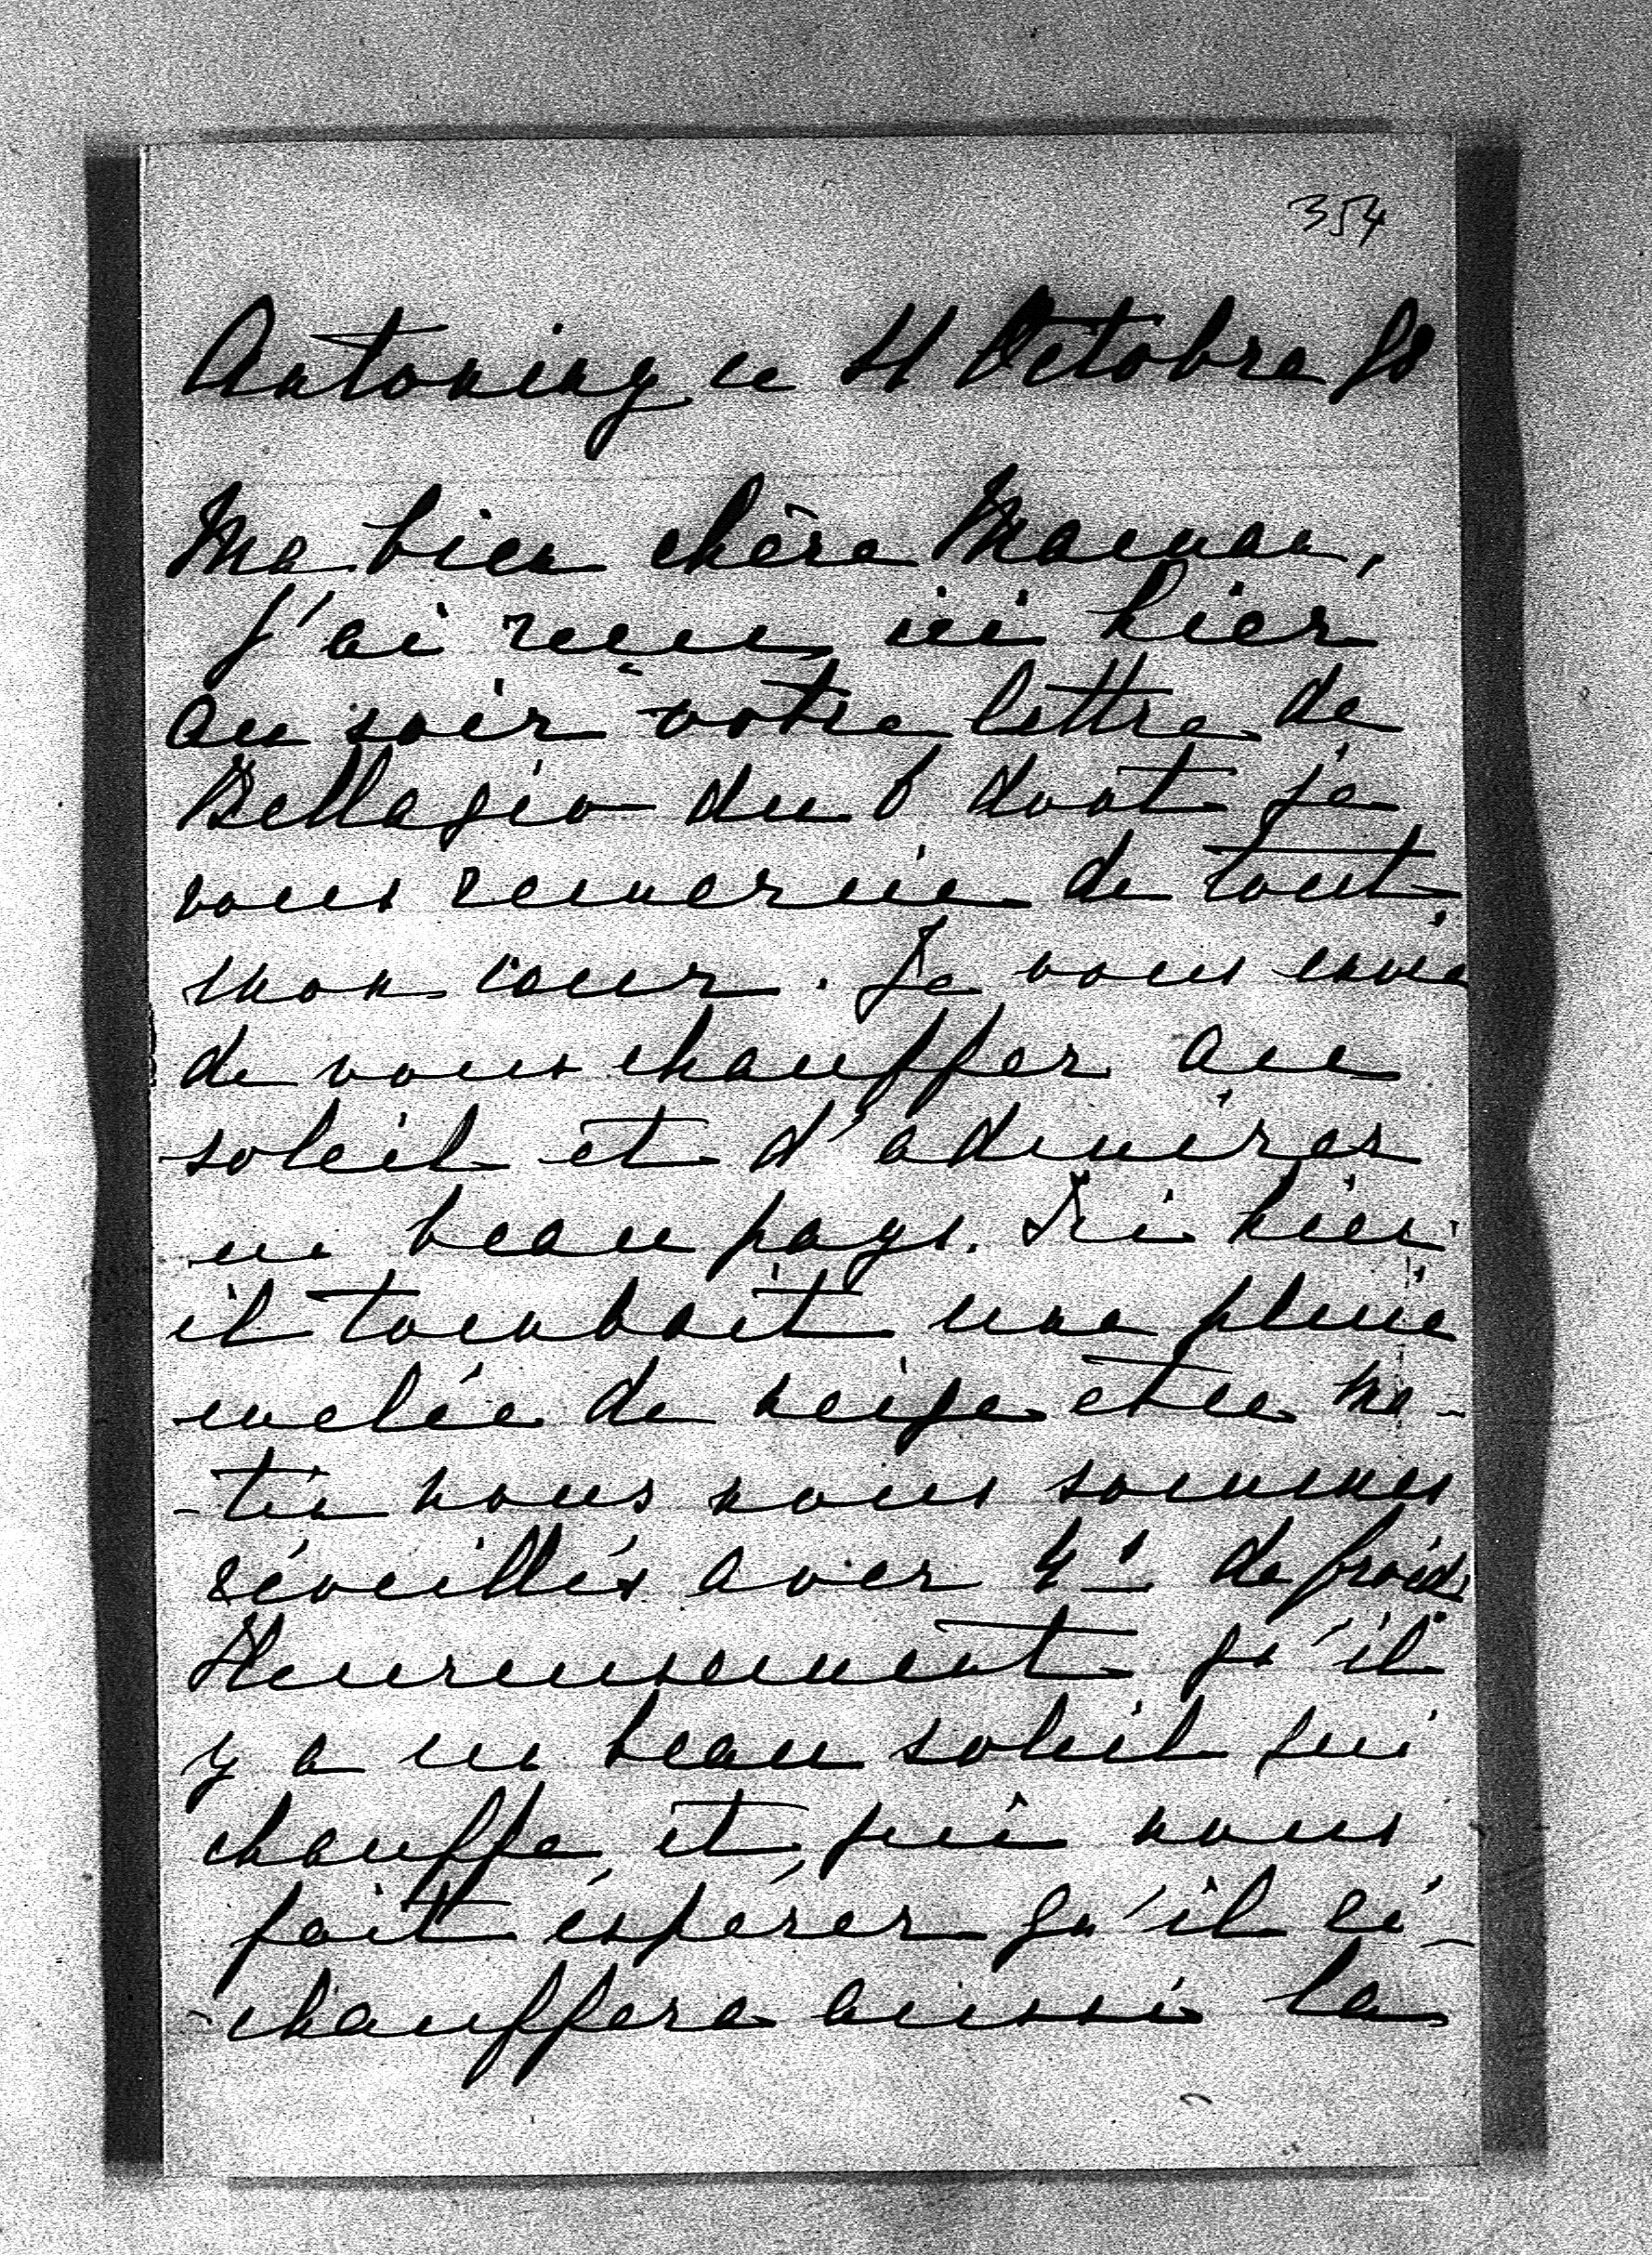 354
Antoniny ce 11 Octobre 98
Ma bien chère Maman,
J'ai reçu ici hier
au soir votre lettre de
Bellagio du 8 dont je
vous remercie de tout
mon cœur. Je vous envie
de vous chauffer au
soleil et d'admirer
un beau pays. Ici hier
il tombait une pluie
melée de neige et ce ma-
-tin nous nous sommes
réveillés avec 4° de froid
Heureusement qu'il
y a un beau soleil qui
chauffe et qui nous
fait éspérer qu'il ré-
-chauffera aussi la